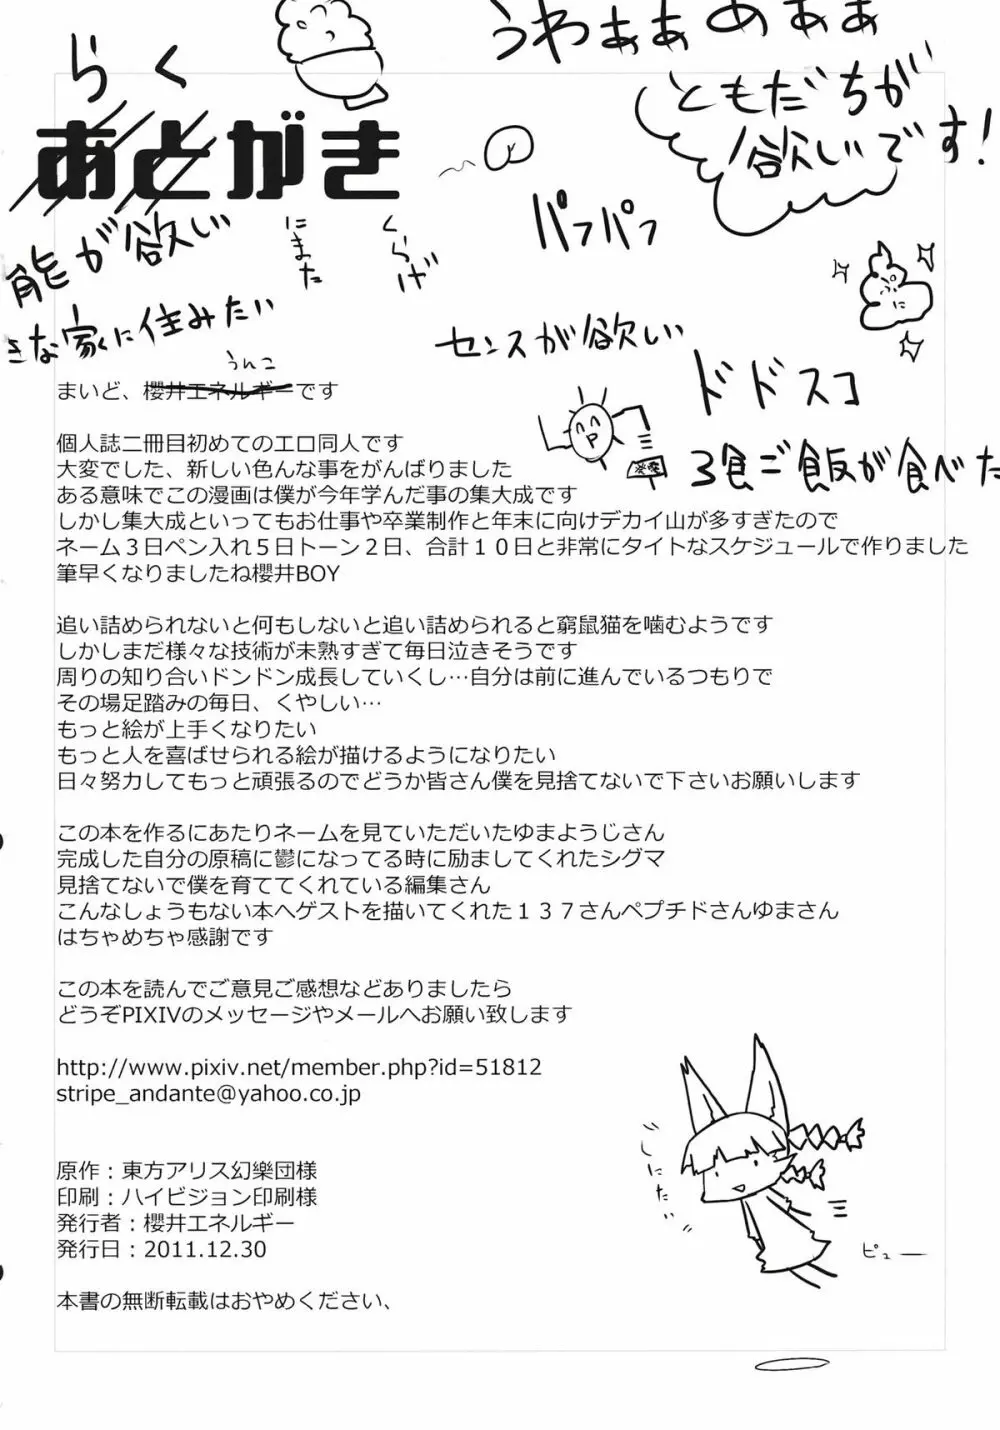 うわぁぁぁぁぁ
らく
ともだちが
欲しいです！
あとがき
パフパフ
能が欲しい
にまた
くらげ
きな家に住みたい
センスが欲しい
うんこ
ドドスコ
３食ご飯が食べた
まいど、櫻井エネルギーです
個人誌二冊目初めてのエロ同人です
大変でした、新しい色んな事をがんばりました
ある意味でこの漫画は僕が今年学んだ事の集大成です
しかし集大成といってもお仕事や卒業制作と年末に向けデカイ山が多すぎたので
ネーム３日ペン入れ５日トーン２日、合計１０日と非常にタイトなスケジュールで作りました
筆早くなりましたね櫻井BOY
追い詰められないと何もしないと追い詰められると窮鼠猫を噛むようです
しかしまだ様々な技術が未熟すぎて毎日泣きそうです
周りの知り合いドンドン成長していくし…自分は前に進んでいるつもりで
その場足踏みの毎日、くやしい…
もっと絵が上手くなりたい
もっと人を喜ばせられる絵が描けるようになりたい
日々努力してもっと頑張るのでどうか皆さん僕を見捨てないで下さいお願いします
この本を作るにあたりネームを見ていただいたゆまようじさん
完成した自分の原稿に鬱になってる時に励ましてくれたシグマ
見捨てないで僕を育ててくれている編集さん
こんなしょうもない本へゲストを描いてくれた１３７さんペプチドさんゆまさん
はちゃめちゃ感謝です
この本を読んでご意見ご感想などありましたら
どうぞPIXIVのメッセージやメールへお願い致します
http://www.pixiv.net/member.php?id=51812
stripe_andante@yahoo.co.jp
原作：東方アリス幻樂団様
印刷：ハイビジョン印刷様
発行者：櫻井エネルギー
発行日：2011.12.30
本書の無断転載はおやめください、
ピュー